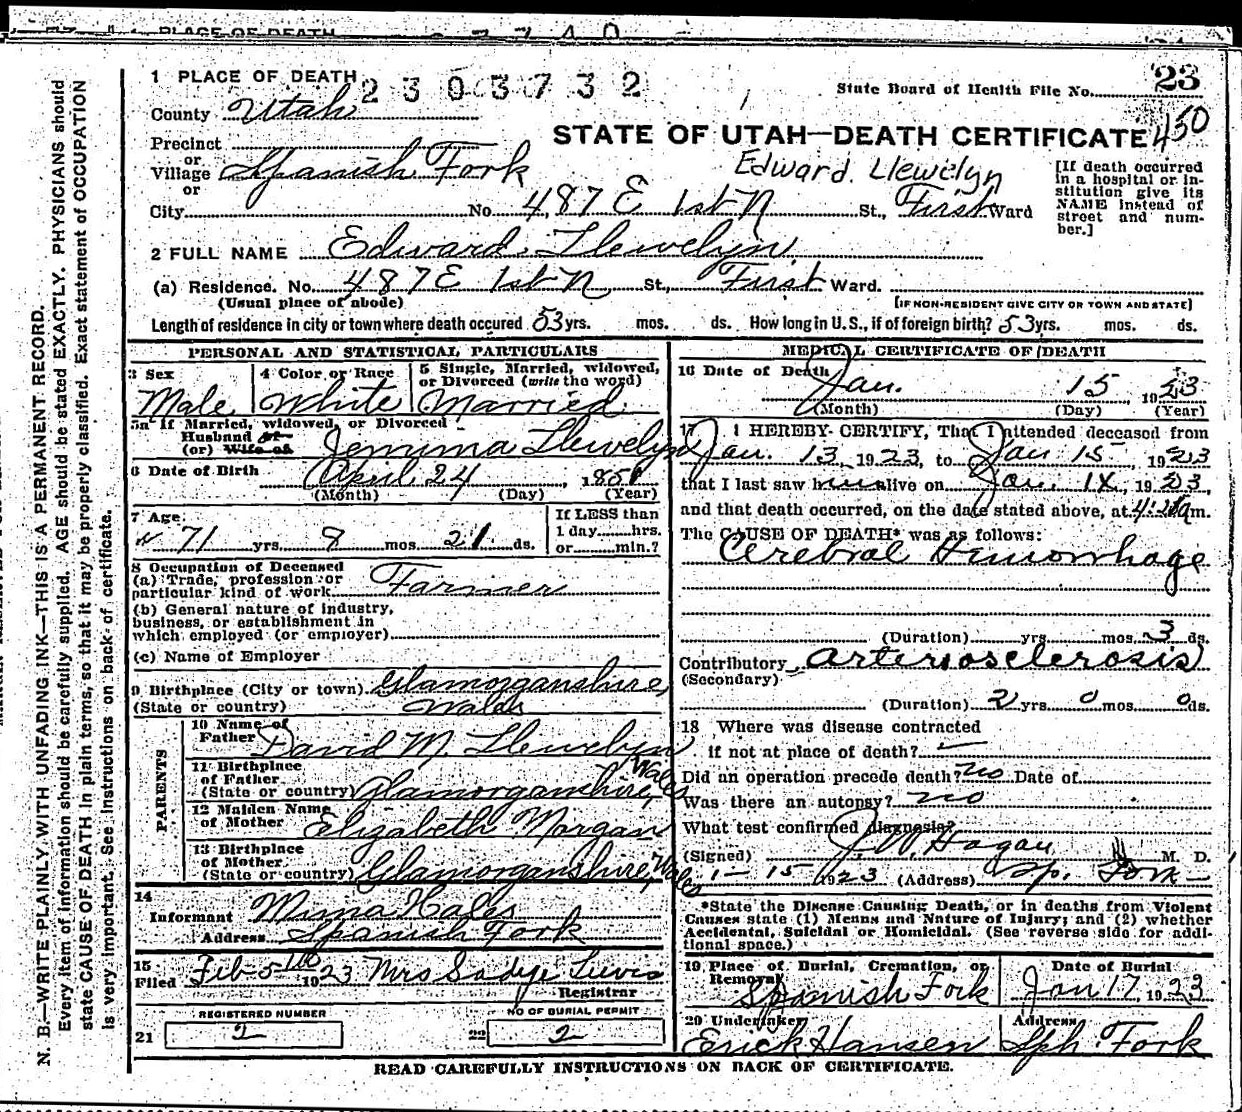 PLACE OF DEATH
23
1 PLACE OF DEATH
2303732
State Board of Health File No.
County Utah
450
STATE OF UTAH—DEATH CERTIFICATE
Precinct
or
Village Spanish Fork
or
Edward Llewelyn
[If death occurred in a hospital or institution give its NAME instead of street and number.]
City No. 487 E 1st N St., First Ward
2 FULL NAME Edward Llewelyn
(a) Residence. No. 487 E 1st N St., First Ward.
(Usual place of abode) [IF NON-RESIDENT GIVE CITY OR TOWN AND STATE]
Length of residence in city or town where death occured 53 yrs. mos. ds. How long in U.S., if of foreign birth? 53 yrs. mos. ds.
PERSONAL AND STATISTICAL PARTICULARS
3 Sex
Male
4 Color or Race
White
5 Single, Married, widowed, or Divorced (write the word)
Married
5a If Married, widowed, or Divorced
Husband or
(or) Wife of Jemima Llewelyn
6 Date of Birth April 24, 1851
(Month) (Day) (Year)
7 Age
71 yrs. 8 mos. 21 ds.
If LESS than
1 day......hrs.
or......min.?
8 Occupation of Deceased
(a) Trade, profession or
particular kind of work Farmer
(b) General nature of industry,
business, or establishment in
which employed (or employer)
(c) Name of Employer
9 Birthplace (City or town) Glamorganshire,
(State or country) Wales
PARENTS
10 Name of
Father David M. Llewelyn
11 Birthplace
of Father
(State or country) Glamorganshire, Wales
12 Maiden Name
of Mother Elizabeth Morgan
13 Birthplace
of Mother
(State or country) Glamorganshire, Wales
14
Informant Mima Hales
Address Spanish Fork
15
Filed Feb 5th 1923 Mrs Sadye Lewis
Registrar
REGISTERED NUMBER
21 2
NO OF BURIAL PERMIT
22 2
MEDICAL CERTIFICATE OF DEATH
16 Date of Death Jan. 15 1923
(Month) (Day) (Year)
17 I HEREBY CERTIFY, That I attended deceased from
Jan. 13, 1923, to Jan 15 1923
that I last saw him alive on Jan. 1923,
and that death occurred, on the date stated above, at m.
The CAUSE OF DEATH* was as follows:
Cerebral Hemorrhage
(Duration) yrs. mos. 3 ds.
Contributory arteriosclerosis
(Secondary)
(Duration) 2 yrs 0 mos 0 ds.
18 Where was disease contracted
if not at place of death?
Did an operation precede death? no Date of
Was there an autopsy? no
What test confirmed diagnosis?
(Signed) J.W. Hagan M. D.
1-15 1923 (Address) Sp. Fork
*State the Disease Causing Death, or in deaths from Violent
Causes state (1) Means and Nature of Injury; and (2) whether
Accidental, Suicidal or Homicidal. (See reverse side for addi-
tional space.)
19 Place of Burial, Cremation, or
Removal Spanish Fork
Date of Burial
Jan 17, 1923
20 Undertaker
Erick Hansen
Address
Sph. Fork
READ CAREFULLY INSTRUCTIONS ON BACK OF CERTIFICATE.
N. B.—WRITE PLAINLY WITH UNFADING INK—THIS IS A PERMANENT RECORD.
Every item of information should be carefully supplied. AGE should be stated EXACTLY. PHYSICIANS should
state CAUSE OF DEATH in plain terms, so that it may be properly classified. Exact statement of OCCUPATION
is very important. See instructions on back of certificate.